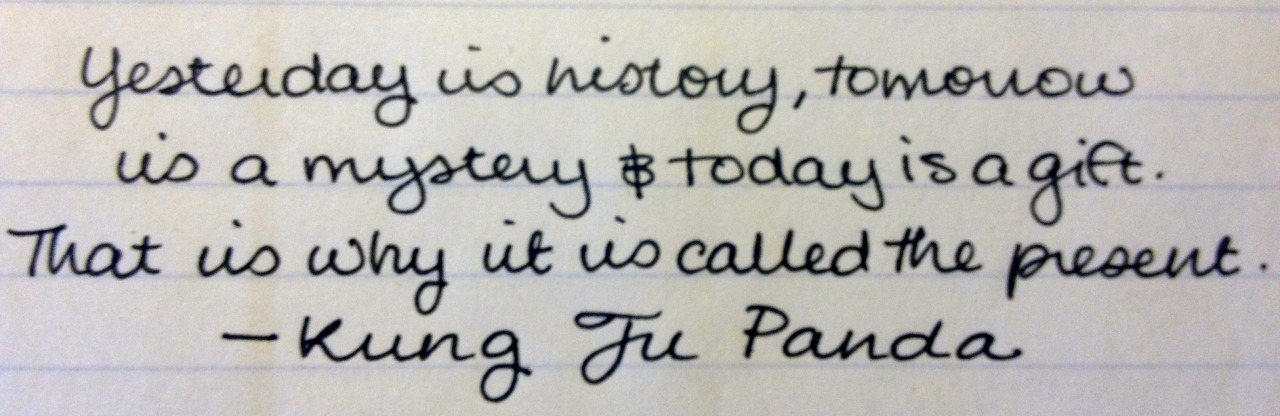 Yesterday is history, tomorrow
is a mystery & today is a gift.
That is why it is called the present.
- Kung Fu Panda